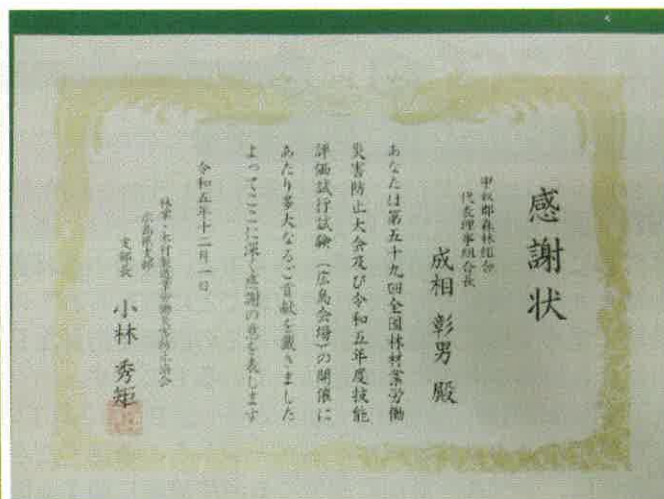 感謝状
甲奴郡森林組合
代表理事組合長
成相 彰男 殿
あなたは第五十九回全国林材業労働
災害防止大会及び令和五年度技能
評価試行試験（広島会場）の開催に
あたり多大なるご貢献を戴きました
よってここに深く感謝の意を表します
令和五年十二月一日
林業・木材製造業労働災害防止協会
広島県支部
支部長 小林 秀矩